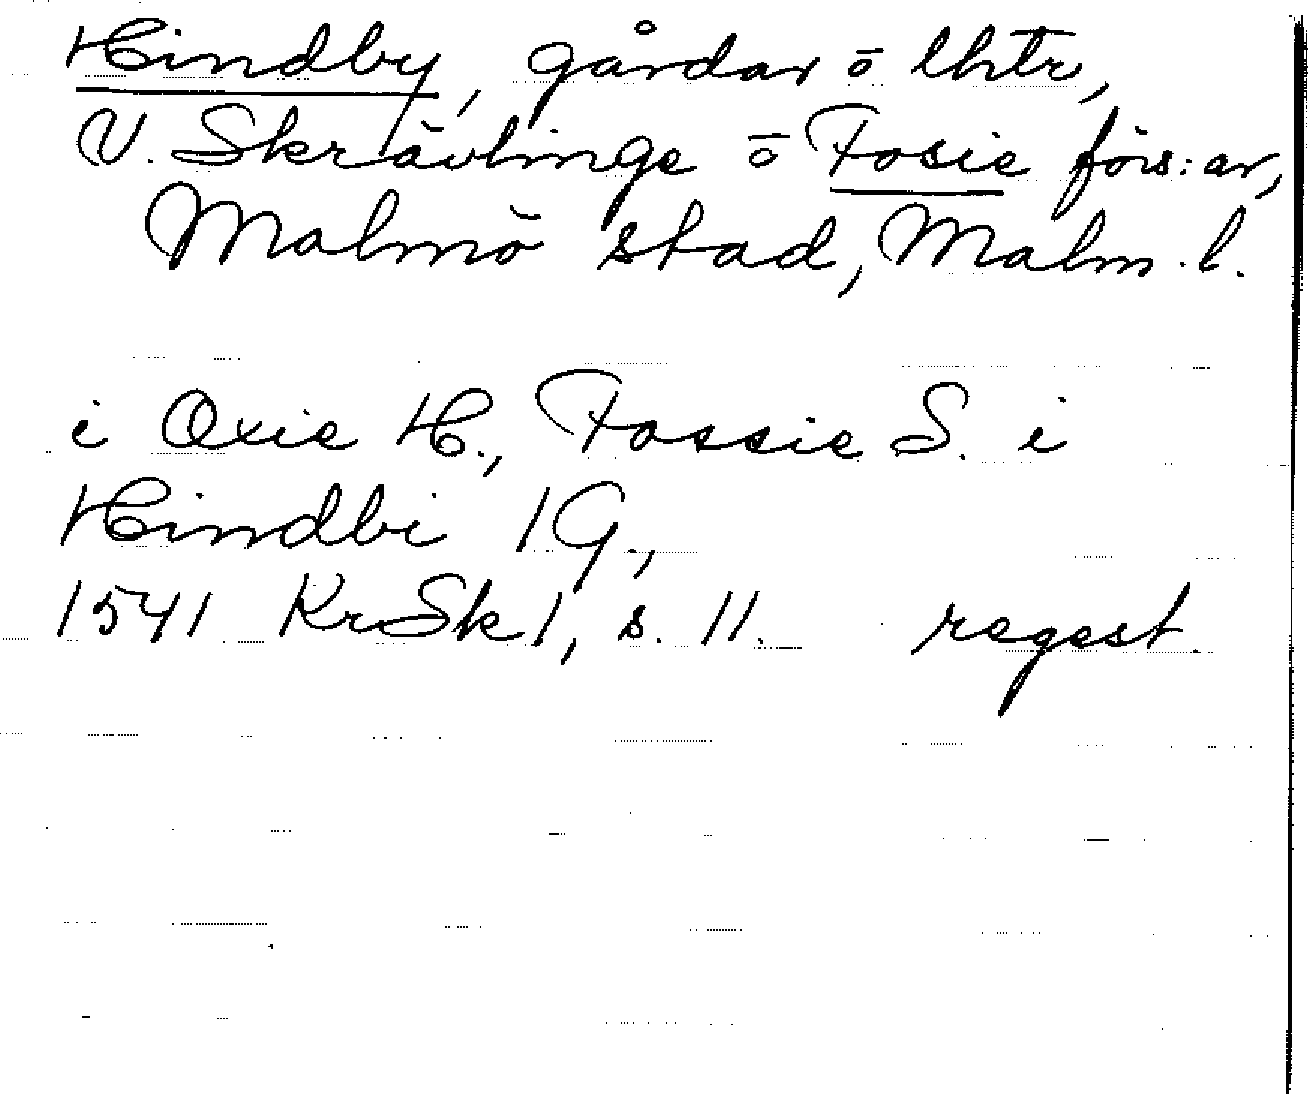 Hindby, gårdar o lhtr,
V. Skrävlinge o Fosie förs:ar,
Malmö stad, Malm. l.
i Oxie H., Fossie S. i
Hindbi 1 G.,
1541 KrSk 1, s. 11. regest.